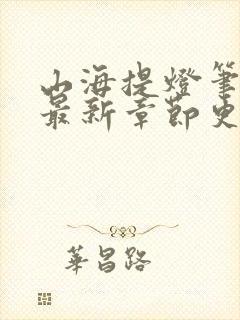 山海提燈筆
最新章節史
華昌路